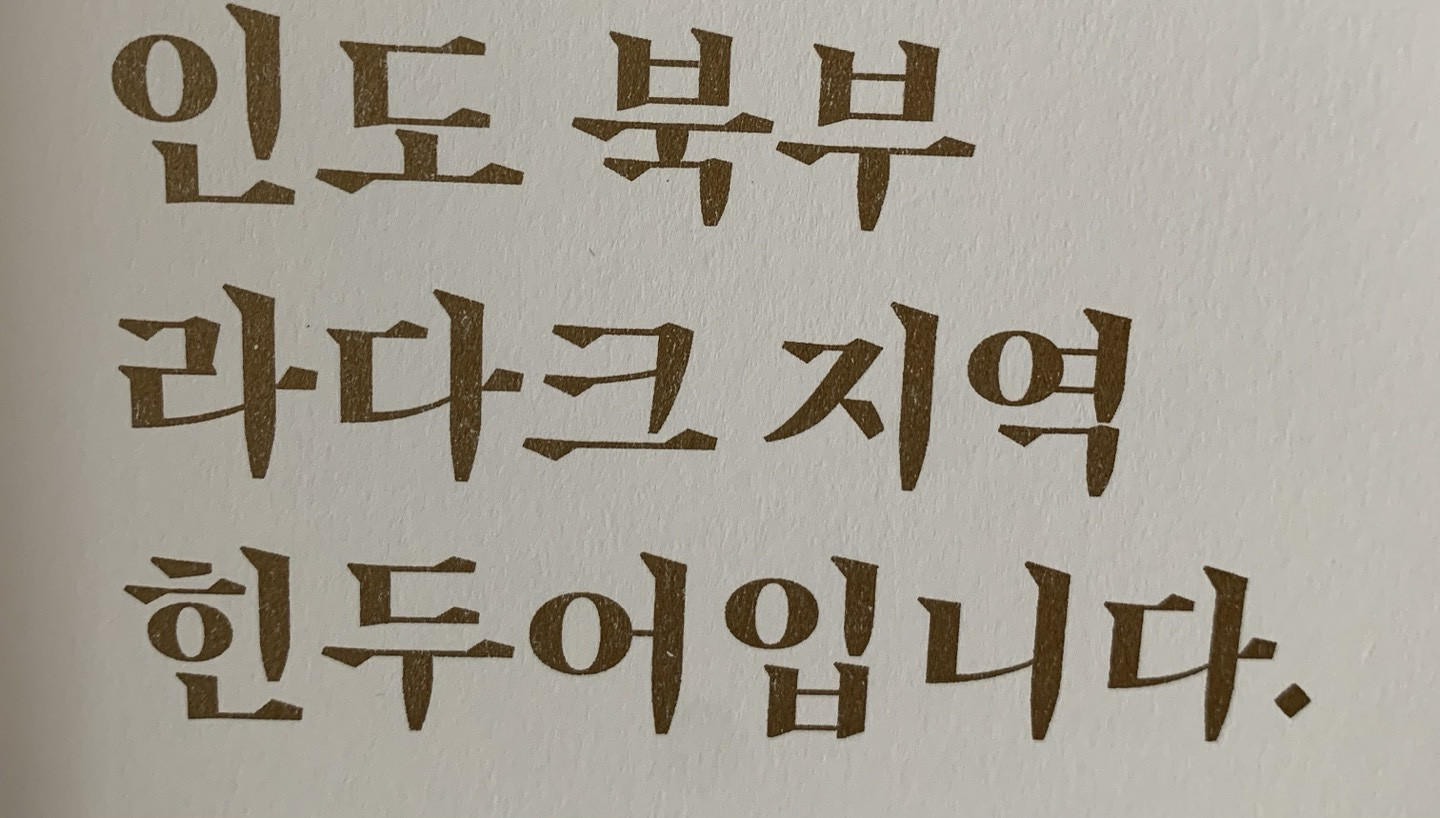 인도 북부
라다크 지역
힌두어입니다.